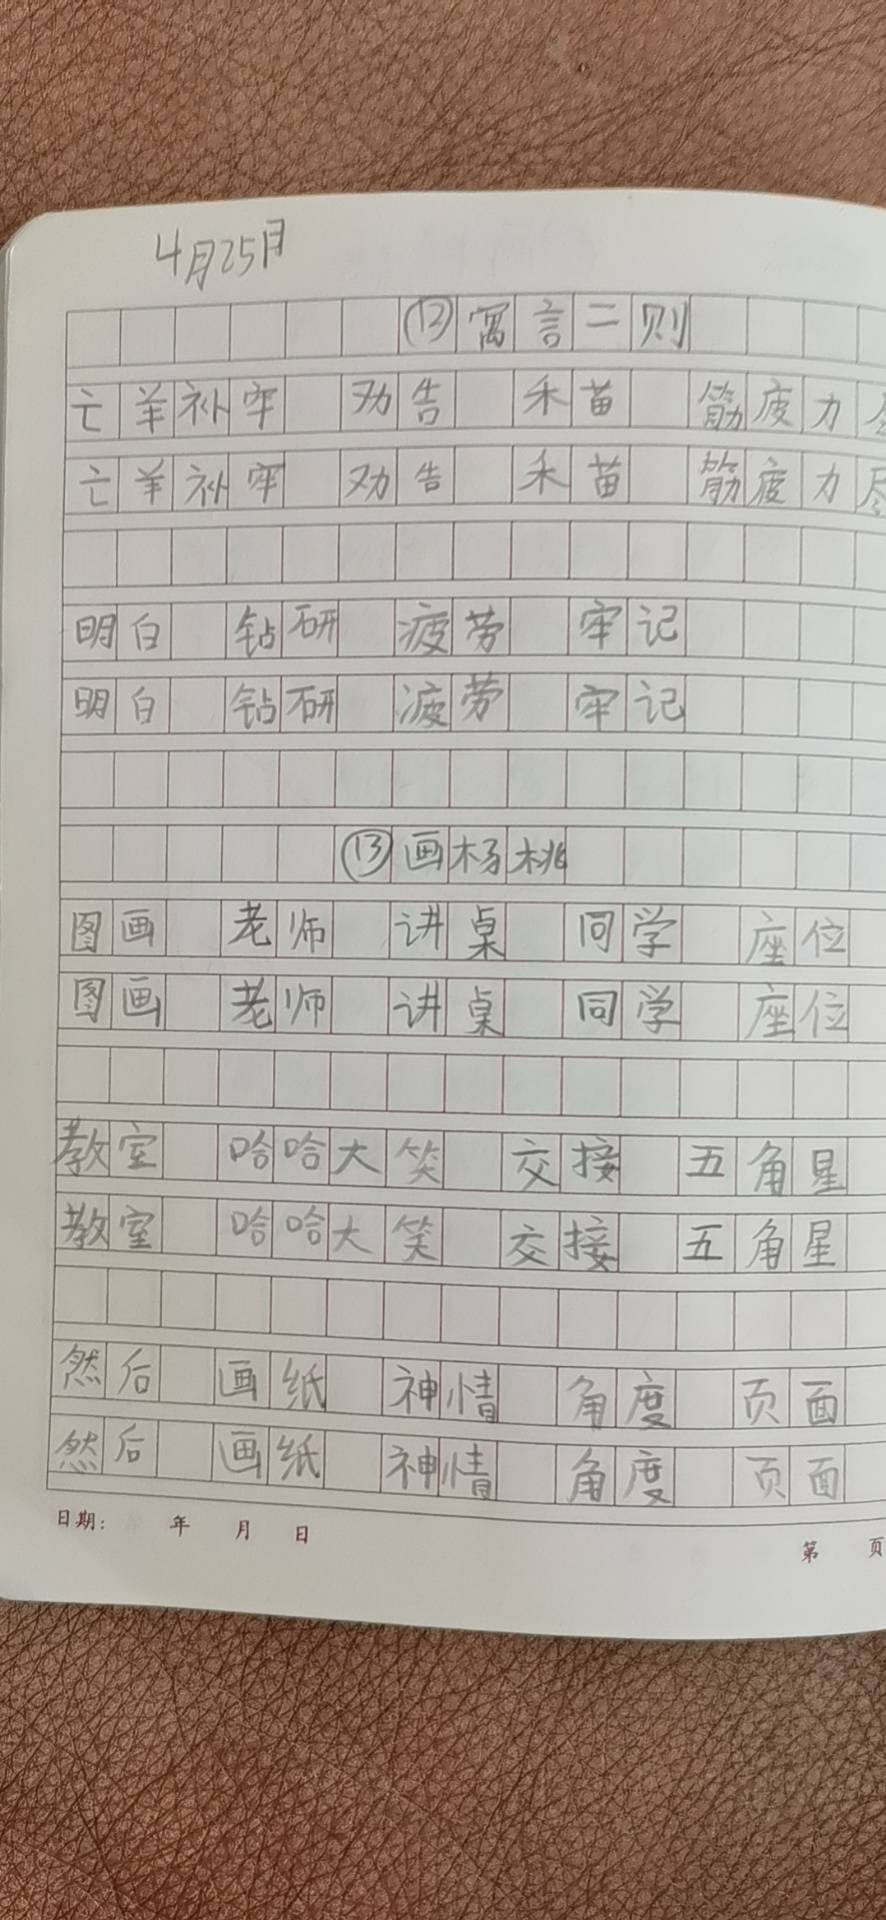 4月25日
⑫寓言二则
亡羊补牢 劝告 禾苗 筋疲力
亡羊补牢 劝告 禾苗 筋疲力尽
明白 钻研 疲劳 牢记
明白 钻研 疲劳 牢记
⑬画杨桃
图画 老师 讲桌 同学 座位
图画 老师 讲桌 同学 座位
教室 哈哈大笑 交接 五角星
教室 哈哈大笑 交接 五角星
然后 画纸 神情 角度 页面
然后 画纸 神情 角度 页面
日期: 年 月 日
第 页